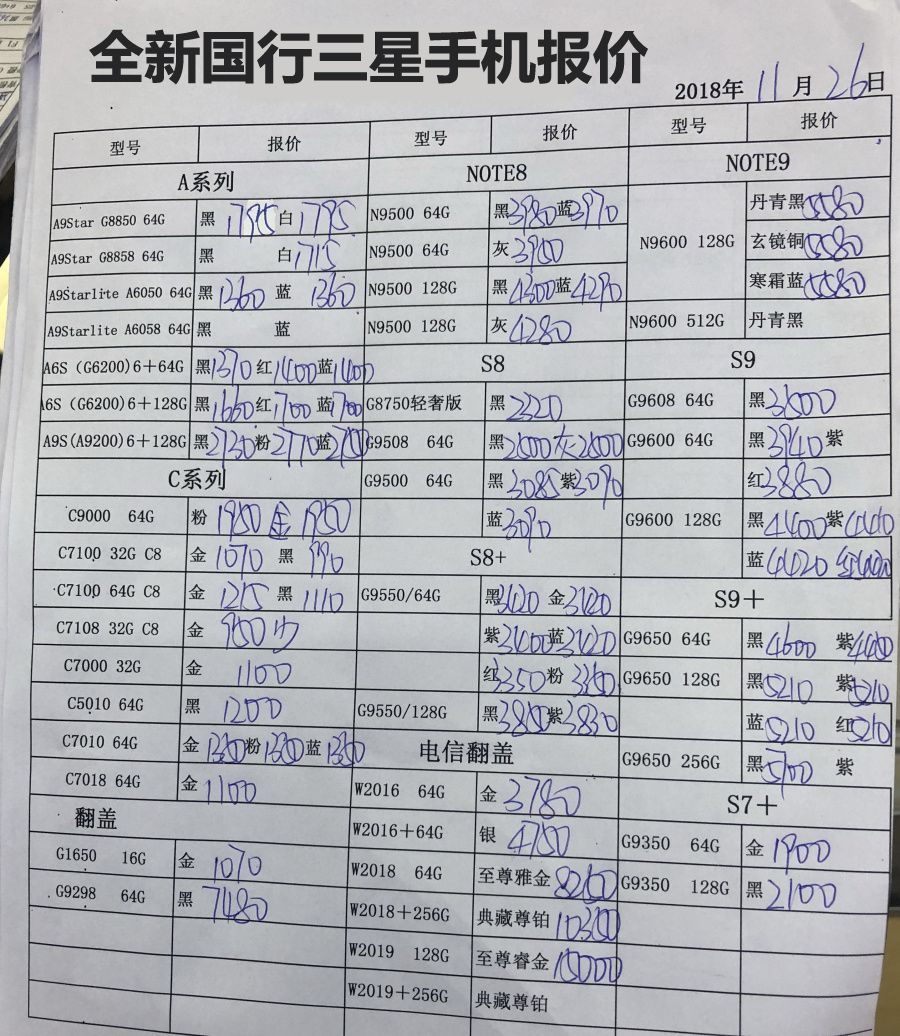 全新国行三星手机报价
2018年 11 月 26 日
型号 报价 型号 报价 型号 报价
A系列 NOTE8 NOTE9
A9Star G8850 64G 黑 1795 白 1795 N9500 64G 黑3980蓝3970 N9600 128G 丹青黑5580
A9Star G8858 64G 黑 白1715 N9500 64G 灰3950 玄镜铜5580
A9Starlite A6050 64G 黑 1360 蓝 1360 N9500 128G 黑4300蓝4290 寒霜蓝5580
A9Starlite A6058 64G 黑 蓝 N9500 128G 灰4280 N9600 512G 丹青黑
A6S（G6200)6+64G 黑1370 红1400蓝1400 S8 S9
A6S（G6200)6+128G 黑1660红1700 蓝1700 G8750轻奢版 黑 2320 G9608 64G 黑3500
A9S(A9200)6+128G 黑2730粉2770蓝 G9508 64G 黑2800灰2800 G9600 64G 黑3940 紫
C系列 G9500 64G 黑3085紫3090 红3880
C9000 64G 粉 1950 金 1950 蓝3090 G9600 128G 黑4400紫4410
C7100 32G C8 金 1070 黑 990 S8+ 蓝4420 红
C7100 64G C8 金 1215 黑 1110 G9550/64G 黑3420 金3420 S9+
C7108 32G C8 金 950 紫3400蓝3420 G9650 64G 黑4600 紫
C7000 32G 金 1100 红3350粉 3350 G9650 128G 黑5210 紫5210
C5010 64G 黑 1200 G9550/128G 黑 紫3830 蓝5210 红5210
C7010 64G 金 1350粉1350蓝 1350 电信翻盖 G9650 256G 黑5700 紫
C7018 64G 金 1100 W2016 64G 金 3780 S7+
翻盖 W2016+64G 银 4750 G9350 64G 金 1900
G1650 16G 金 1070 W2018 64G 至尊雅金 G9350 128G 黑 2100
G9298 64G 黑 7480 W2018+256G 典藏尊铂 10300
W2019 128G 至尊睿金 15000
W2019+256G 典藏尊铂